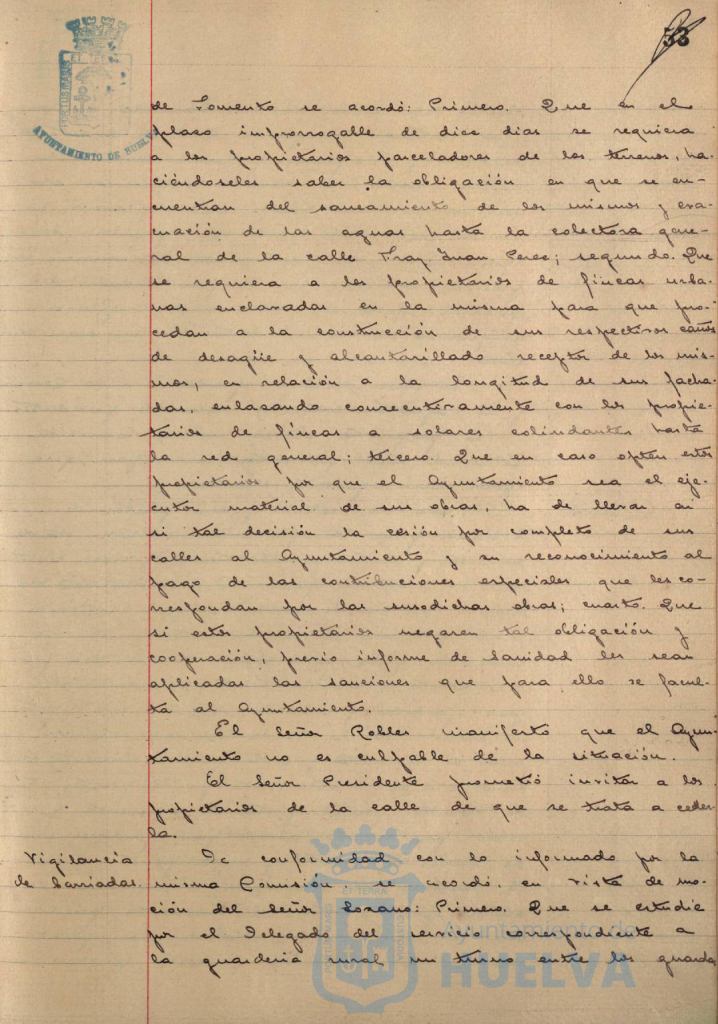 53
AYUNTAMIENTO DE HUELVA
de Fomento se acordó: Primero. Que en el
plaso improrrogable de diez dias se requiera
a los propietarios parceladores de los terrenos, ha-
ciéndoseles saber la obligación en que se en-
cuentran del saneamiento de los mismos y eva-
cuación de las aguas hasta la colectora gene-
ral de la calle Fray Juan Perez; segundo. Que
se requiera a los propietarios de fincas urba-
nas enclavadas en la misma para que pro-
cedan a la construcción de sus respectivos caños
de desagüe y alcantarillado receptor de los mis-
mos, en relación a la longitud de sus facha-
das, enlasando consecutivamente con los propie-
tarios de fincas a solares colindantes hasta
la red general; tercero. Que en caso opten estos
propietarios por que el Ayuntamiento sea el eje-
cutor material de sus obras, ha de llevar en
si tal decisión la cesión por completo de sus
calles al Ayuntamiento y su reconocimiento al
pago de las contribuciones especiales que les co-
rrespondan por las susodichas obras; cuarto. Que
si estos propietarios negaren tal obligación y
cooperación, previo informe de Sanidad les sean
aplicadas las sanciones que para ello se facul-
ta al Ayuntamiento.
El Señor Robles manifestó que el Ayun-
tamiento no es culpable de la situación.
El Señor Presidente prometió invitar a los
propietarios de la calle de que se trata a ceder-
la.
Vigilancia
de barriadas.
De conformidad con lo informado por la
misma Comisión se acordó, en vista de mo-
ción del Señor Lozano: Primero. Que se estudie
por el Delegado del servicio correspondiente a
la guarderia rural un turno entre los guarda
Ayuntamiento de
HUELVA